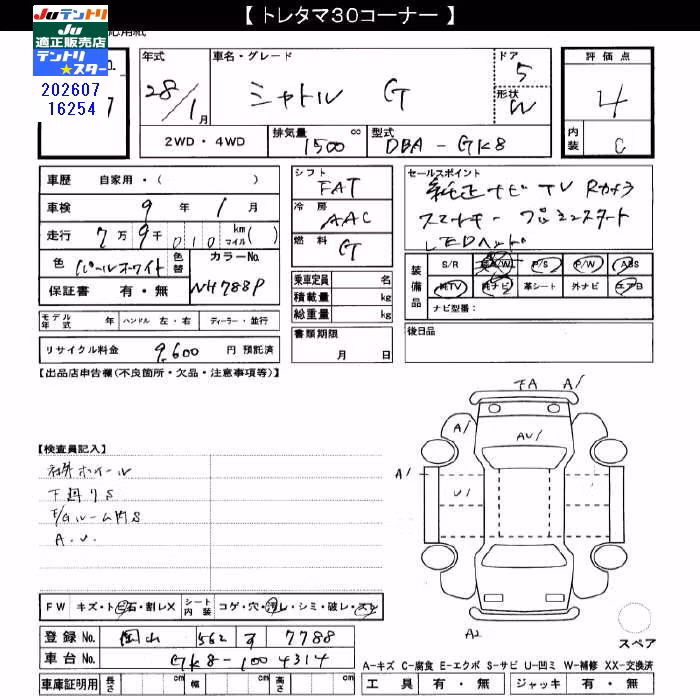 【 トレタマ30コーナー 】
Juテントリ
Ju
適正販売店
テントリ
★スター
202607
16254
年式
28/1月
車名・グレード
シャトル G
ドア
5
形状
W
評価点
4
内装
C
2WD・4WD
排気量
1500 cc
型式
DBA-GK8
車歴 自家用・( )
車検 9年 1月
走行 7万9千010 km マイル( )
色 パールホワイト
色替
カラーNo.
NH788P
保証書 有・無
シフト
FAT
冷房
AAC
燃料
G
乗車定員 名
積載量 kg
総重量 kg
書類期限
月 日
セールスポイント
純正ナビ TV Rカメラ
スマートキー プッシュスタート
LEDヘッド
装備品
S/R A/W P/S P/W ABS
純TV 純ナビ 革シート 外ナビ エアB
ナビ型番:
後日品
モデル年式 年 ハンドル 左・右 ディーラー・並行
リサイクル料金 9,600 円 預託済
【出品店申告欄(不良箇所・欠品・注意事項等)】
【検査員記入】
社外ホイール
下廻りS
E/Gルーム内S
A.U.
FA
A1
A1
AU1
A1
U1
A2
FW キズ・トビ石・割レX
シート内装 コゲ・穴・汚レ・シミ・破レ・スレ
登録No. 岡山 562 す 7788
車台No. GK8-1004314
車庫証明用 長さ cm 幅 cm 高さ cm
スペア
A-キズ C-腐食 E-エクボ S-サビ U-凹ミ W-補修 XX-交換済
工具 有・無 ジャッキ 有・無